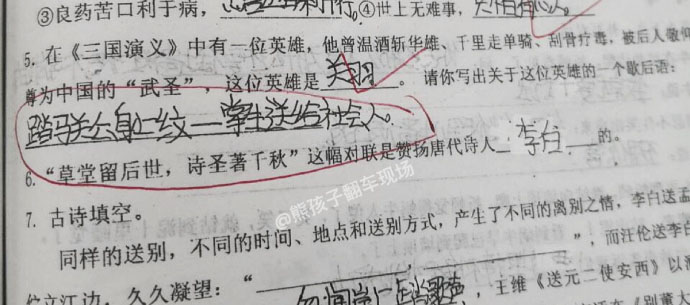 ③良药苦口利于病，忠言逆耳利于行。④世上无难事，只怕有心人。
5. 在《三国演义》中有一位英雄，他曾温酒斩华雄、千里走单骑、刮骨疗毒，被后人敬仰
尊为中国的“武圣”，这位英雄是关羽。请你写出关于这位英雄的一个歇后语：
关公身上纹—学生送给社会人。
6. “草堂留后世，诗圣著千秋”这幅对联是赞扬唐代诗人李白的。
@熊孩子翻车现场
7. 古诗填空。
同样的送别，不同的时间、地点和送别方式，产生了不同的离别之情，李白送孟
伫立江边，久久凝望：“”，而汪伦送李白
忽闻岸上踏歌声，王维《送元二使安西》以酒
《别董大